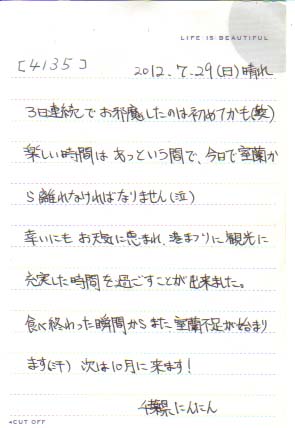 LIFE IS BEAUTIFUL
[4135]
2012.7.29(日)晴れ
3日連続でお邪魔したのは初めてかも(笑)
楽しい時間はあっという間で、今日で室蘭か
ら離れなければなりません(泣)
幸いにもお天気に恵まれ、港まつりに観光に
充実した時間を過ごすことが出来ました。
食べ終わった瞬間からまた、室蘭不足が始まり
ます(汗) 次は10月に来ます!
千葉県にんにん
◂CUT OFF